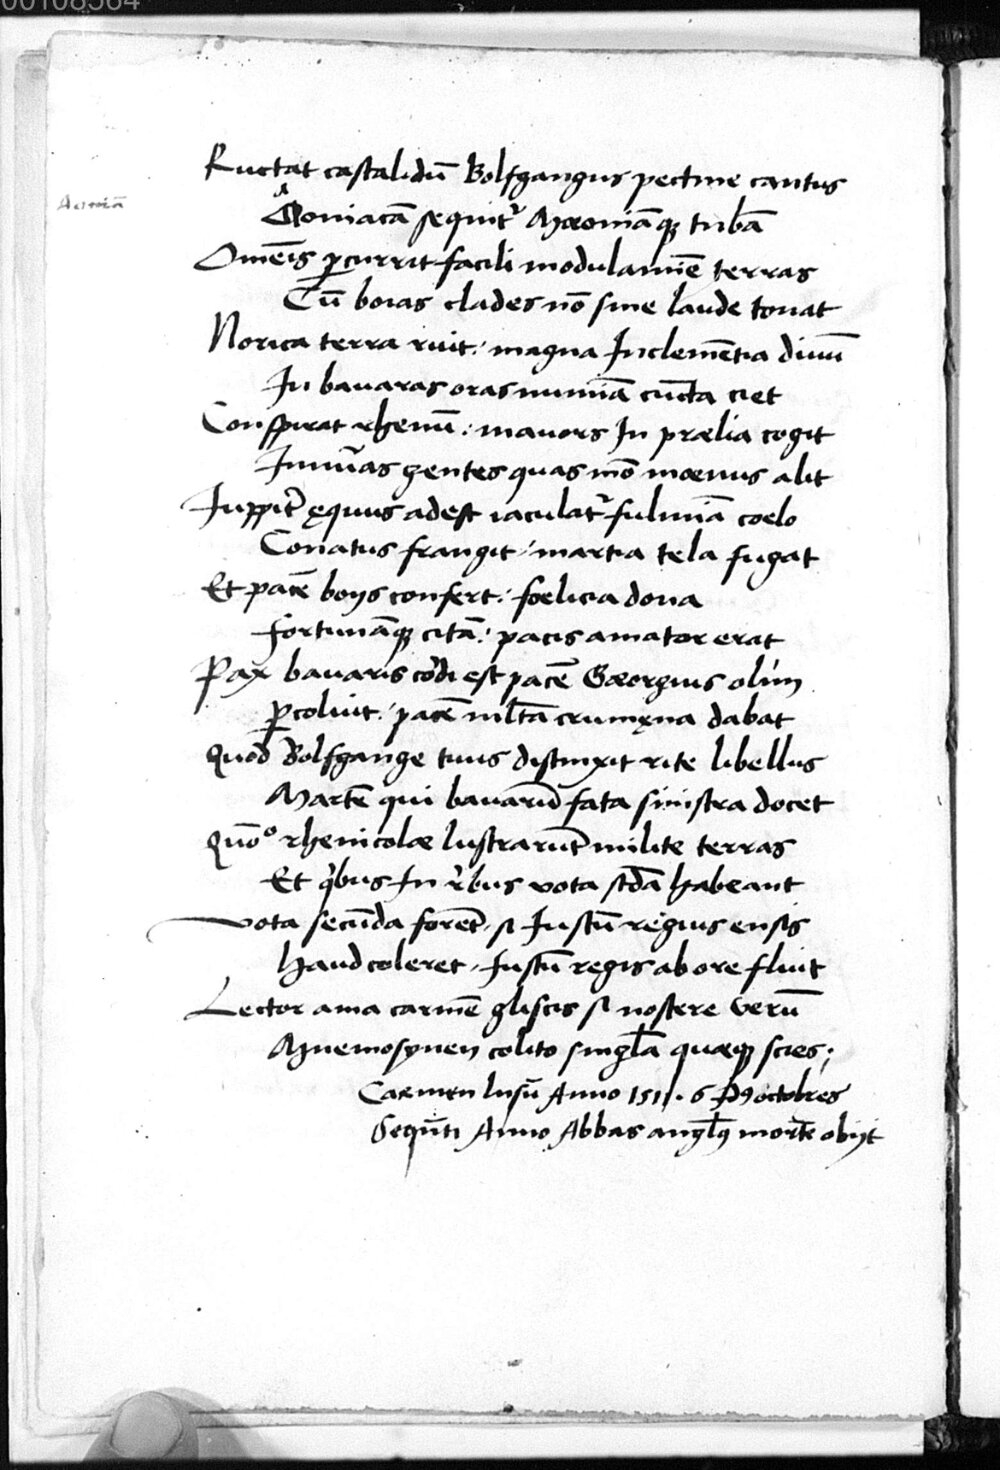 00108564
Ructat castalidū Bolfgangus pectine cantus
Aoniacā sequit᷑ Mæoniāqꝫ tubā
Omēis ꝑcurrit facili modulamīe terras
Cū boias clades nō sine laude tonat
Norica terra ruit: magna Inclemētia diuū
In bauaras oras numīa cūcta ciet
Conspirat rhenū: mauors In prælia cogit
Innūas gentes quas mō moenus alit
Iuppit᷑ ęquus adest iaculat᷑ fulmīa coelo
Conatus frangit: martia tela fugat
Et pacē boijs confert: foelicia dona
Fortunāqꝫ citā: pacis amator erat
Pax bauaris cordi est pacē Georgius olim
ꝑcoluit: pacē multa crumęna dabat
Quod Bolfgange tuus distinxit rite libellus
Martē qui bauarū fata sinistra docet
Quōo rhenicolæ lustrarūt milite terras
Et qͥbus In rͤbus vota scda habeant
Vota secūda foret si Iustū regius ensis
Haud coleret, Iustū regis ab ore fluit
Lector ama carmē gliscis si noscere verū
Mnemosynen colito singla quæqꝫ scies:
Carmen lusū Anno 1511. 6 octobres
Sequēti Anno Abbas anglꝰ morte obijt